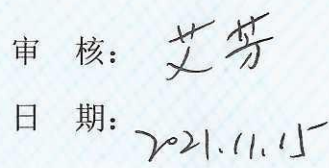 审 核：艾芳
日 期：2021.11.15